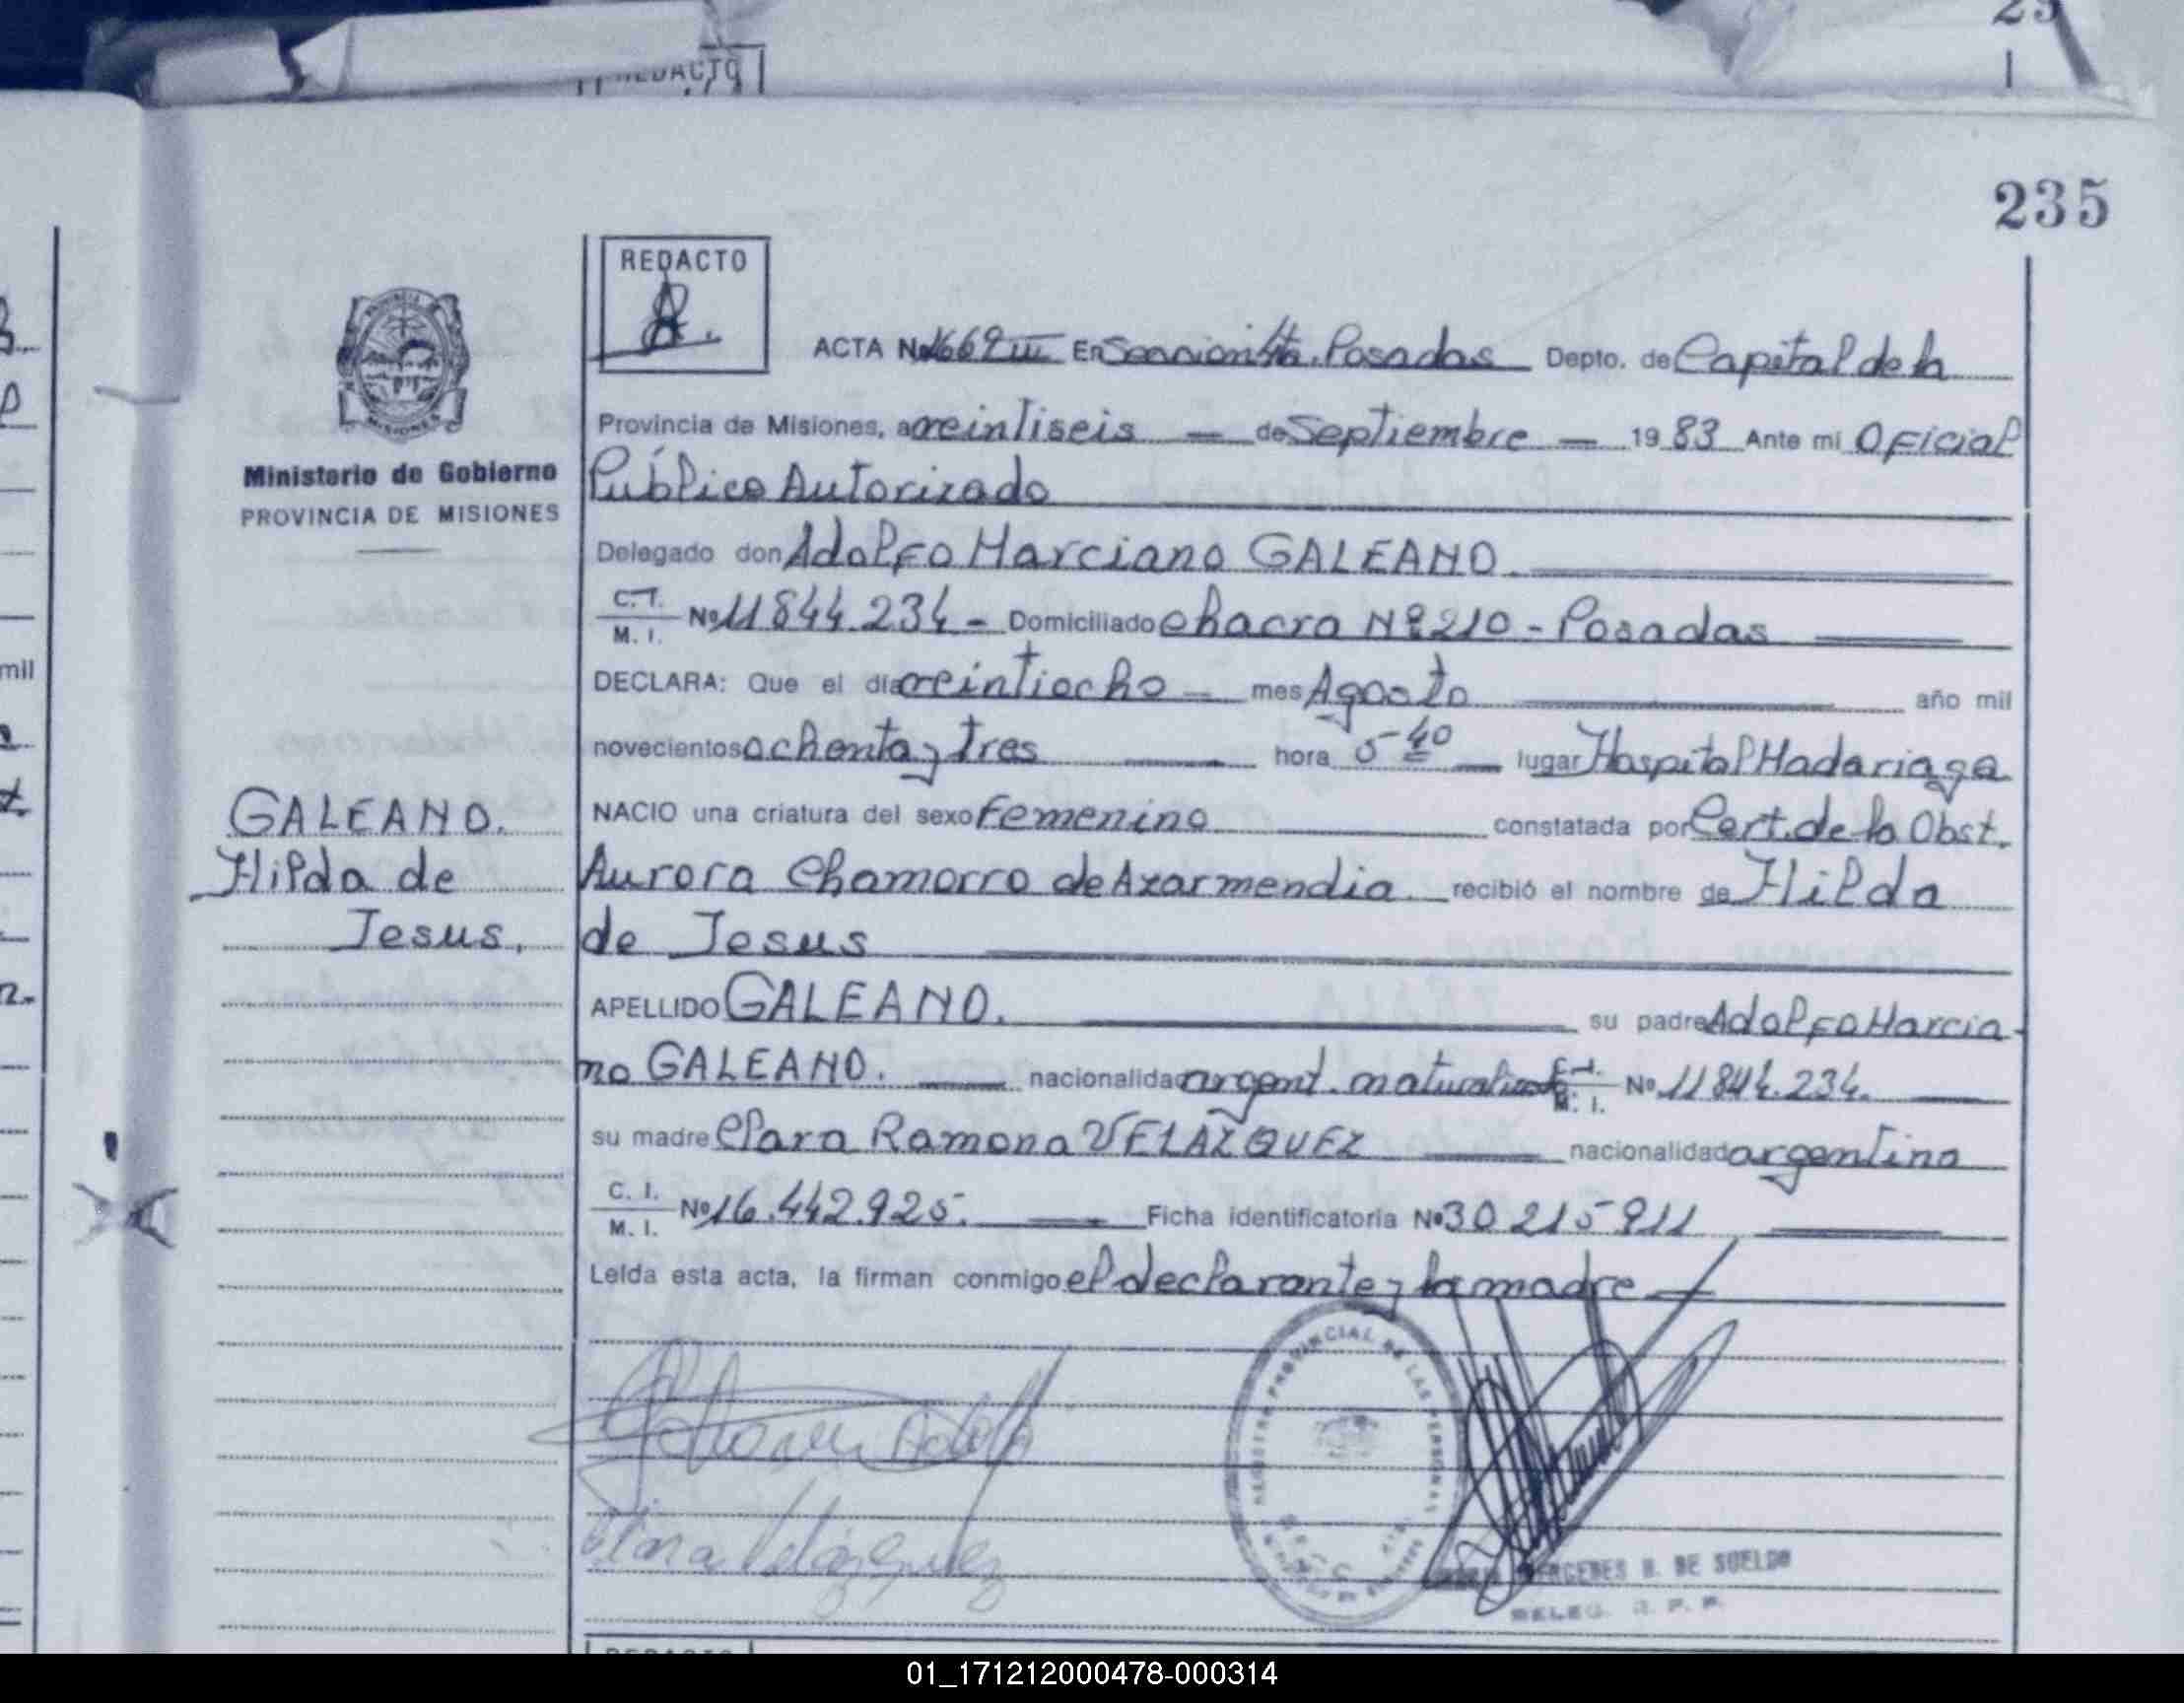 REDACTO
235
REDACTO
ACTA Nº 1669 III En Seccion 4ta. Posadas Depto. de Capital de la
Provincia de Misiones, a veintiseis — de Septiembre — 1983 Ante mi Oficial
Ministerio de Gobierno
Público Autorizado
PROVINCIA DE MISIONES
Delegado don Adolfo Marciano GALEANO.
C.I. M. I. Nº 11844.234 - Domiciliado Chacra Nº 210 - Posadas
DECLARA: Que el día veintiocho — mes Agosto año mil
novecientos ochenta y tres hora 5-40 lugar Hospital Madariaga
GALEANO.
NACIO una criatura del sexo Femenino constatada por Cert. de la Obst.
Hilda de
Aurora Chamorro de Azarmendia. recibió el nombre de Hilda
Jesus.
de Jesus
APELLIDO GALEANO. su padre Adolfo Marcia-
no GALEANO. nacionalidad argent. naturalizado C.I. M. I. Nº 11844.234.
su madre Clara Ramona VELAZQUEZ nacionalidad argentina
C. I. M. I. Nº 16.442.925. Ficha identificatoria Nº 30215911
Leída esta acta, la firman conmigo el declarante y la madre
REGISTRO PROVINCIAL DE LAS PERSONAS
Clara Velázquez
MERCEDES B. DE SUELDO
DELEG. R. P. P.
01_171212000478-000314